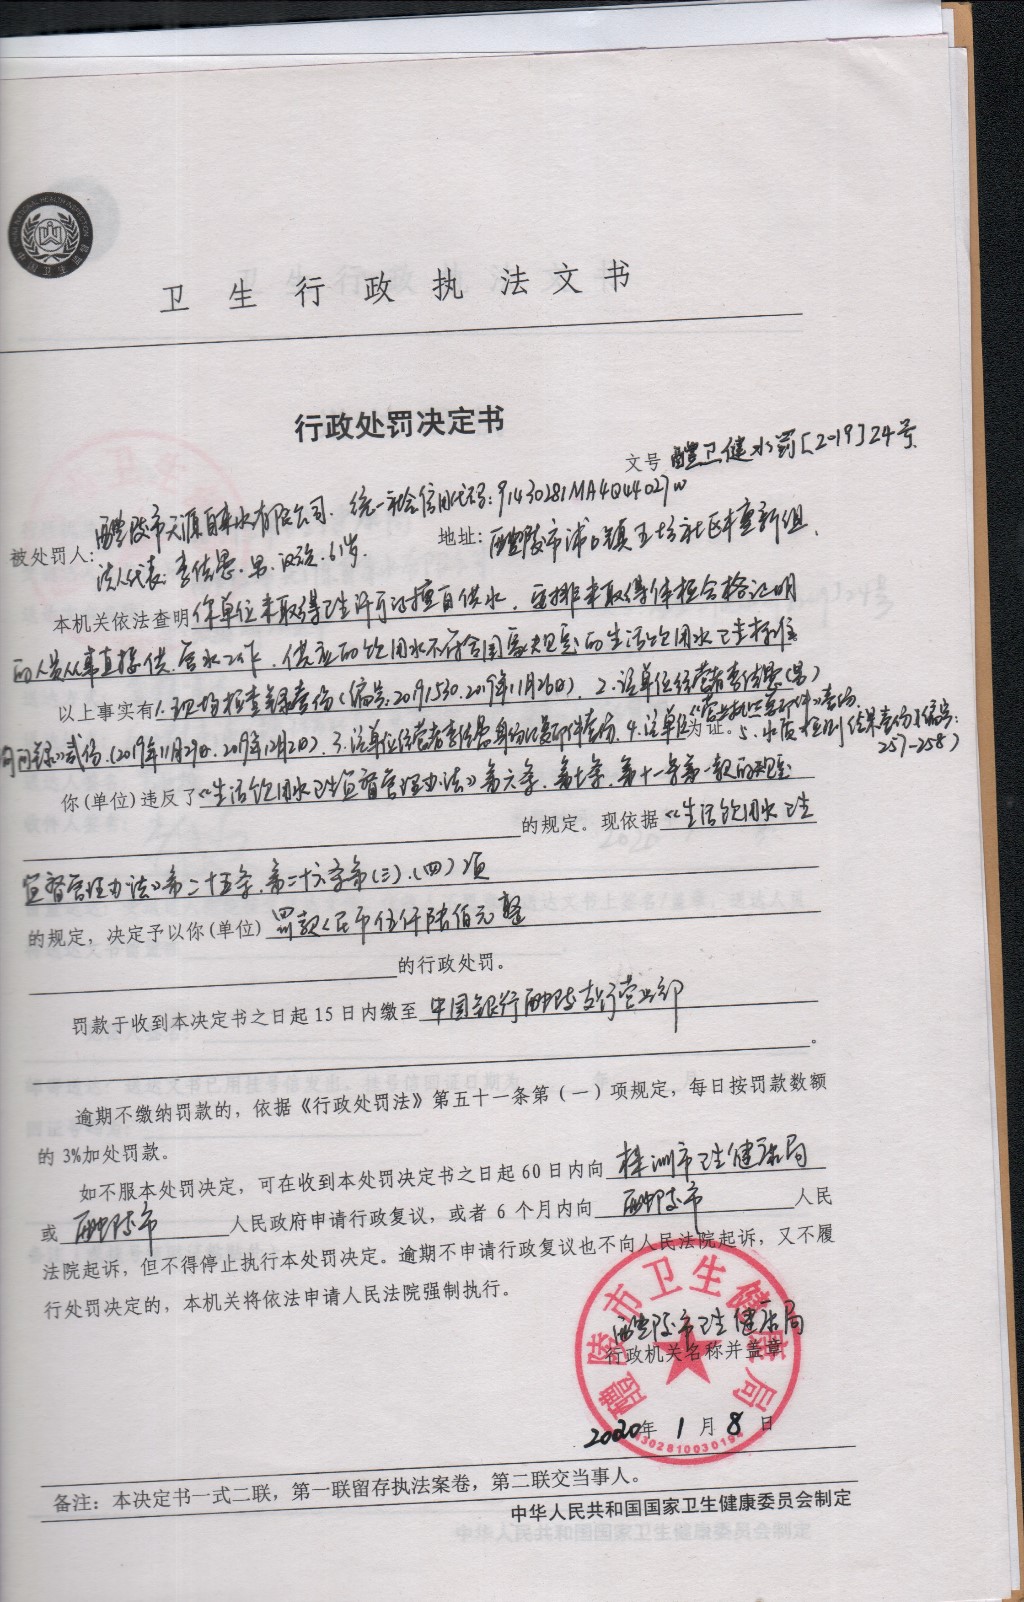 卫生行政执法文书
行政处罚决定书
文号 醴卫健水罚[2019]24号
被处罚人: 醴陵市天源自来水有限公司. 统一社会信用代码: 91430281MA4Q44027W
法人代表: 李佳恩. 男. 汉族. 61岁. 地址: 醴陵市浦口镇王坊社区村重新组.
本机关依法查明 你单位未取得卫生许可证擅自供水, 安排未取得体检合格证明
的人员从事直接供.管水工作, 供应的饮用水不符合国家规定的生活饮用水卫生标准
以上事实有 1.现场检查笔录壹份(编号:20191530.2019年11月26日). 2.该单位经营者李佳恩(男)
询问笔录贰份.(2019年11月29日.2019年12月2日). 3.该单位经营者李佳恩身份证复印件壹份. 4.该单位《营业执照复印件》壹份. 5.水质检测结果壹份(编号:
257-258) 为证。
你(单位)违反了 《生活饮用水卫生监督管理办法》第六条.第七条.第十一条第一款的规定
的规定。现依据 《生活饮用水卫生
监督管理办法》第二十五条.第二十六条第(三).(四)项
的规定，决定予以你(单位) 罚款人民币伍仟陆佰元整
的行政处罚。
罚款于收到本决定书之日起15日内缴至 中国银行醴陵支行营业部
。
逾期不缴纳罚款的，依据《行政处罚法》第五十一条第（一）项规定，每日按罚款数额
的3%加处罚款。
如不服本处罚决定，可在收到本处罚决定书之日起60日内向 株洲市卫生健康局
或 醴陵市 人民政府申请行政复议，或者6个月内向 醴陵市 人民
法院起诉，但不得停止执行本处罚决定。逾期不申请行政复议也不向人民法院起诉，又不履
行处罚决定的，本机关将依法申请人民法院强制执行。
醴陵市卫生健康局
醴陵市卫生健康局
行政机关名称并盖章
2020年 1月 8日
备注：本决定书一式二联，第一联留存执法案卷，第二联交当事人。
中华人民共和国国家卫生健康委员会制定